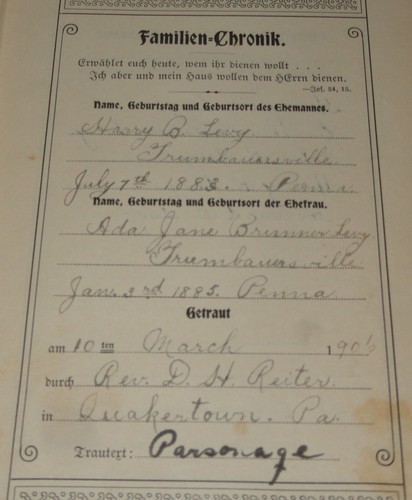 Familien-Chronik.
Erwählet euch heute, wem ihr dienen wollt . . .
Ich aber und mein Haus wollen dem HErrn dienen.
—Jos. 24, 15.
Name, Geburtstag und Geburtsort des Ehemannes.
Harry B. Levy
Trumbauersville
July 7th 1883. Penna
Name, Geburtstag und Geburtsort der Ehefrau.
Ada Jane Brunner Levy
Trumbauersville
Jan. 3rd 1885. Penna
Getraut
am 10ten March
durch Rev. D. H. Reiter
in Quakertown. Pa.
Trautext: Parsonage